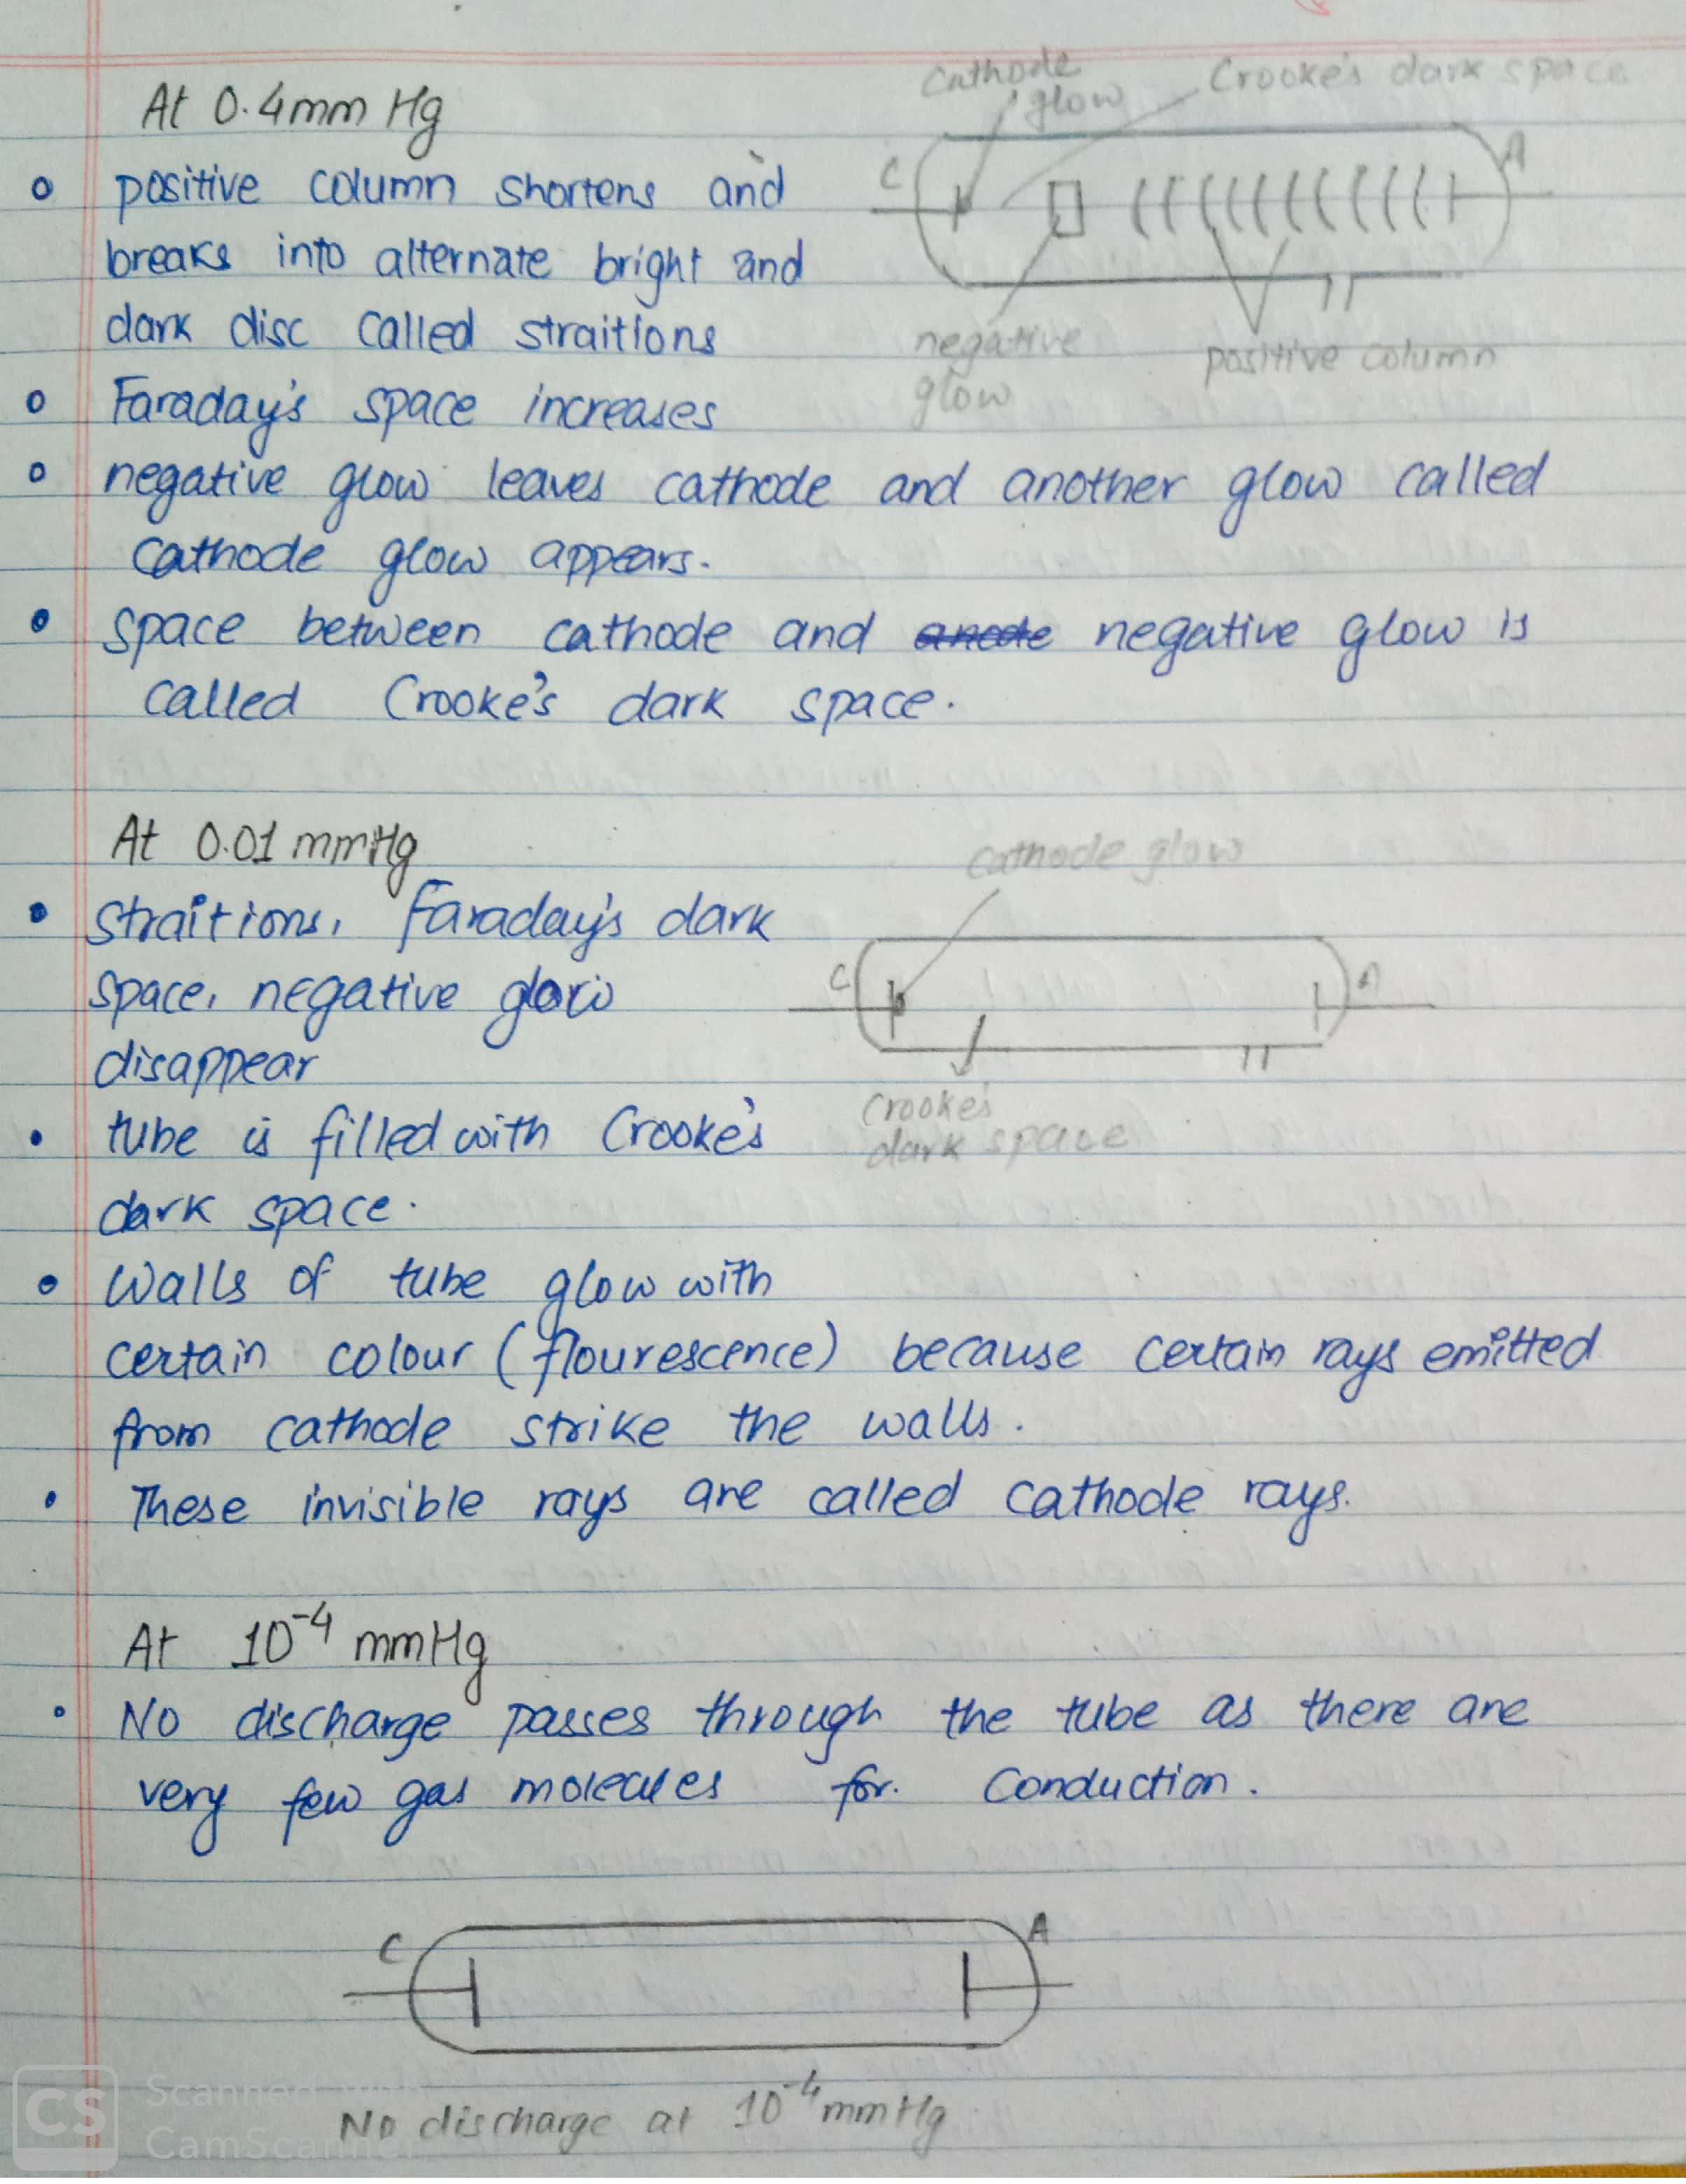 Cathode
glow
Crooke's dark space
At 0.4mm Hg
C
A
positive column shortens and
breaks into alternate bright and
dark disc called straitions
negative
glow
positive column
Faraday's space increases
negative glow leaves cathode and another glow called
cathode glow appears.
space between cathode and anode negative glow is
called Crooke's dark space.
At 0.01 mmHg
cathode glow
straitions, Faraday's dark
space, negative glow
disappear
C
A
tube is filled with Crooke's
dark space.
Crooke's
dark space
Walls of tube glow with
certain colour (flourescence) because certain rays emitted
from cathode strike the walls.
These invisible rays are called cathode rays.
At 10⁻⁴ mmHg
No discharge passes through the tube as there are
very few gas molecules for. Conduction.
C
A
No discharge at 10⁻⁴ mmHg
CS
Scanned with
CamScanner